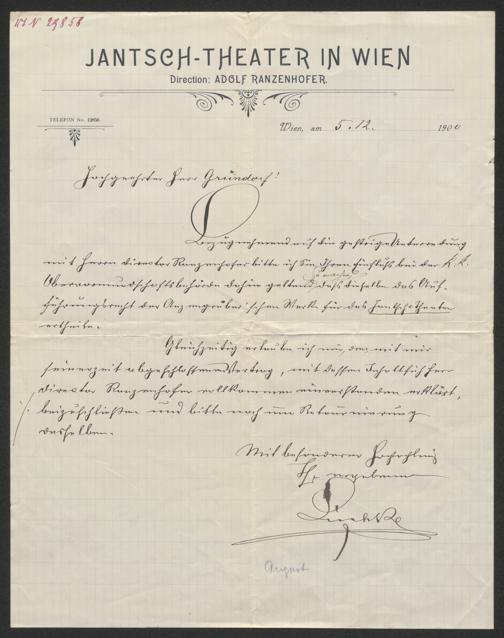 JANTSCH-THEATER IN WIEN
Direction: ADOLF RANZENHOFER.
TELEFON No.
Wien, am 5.12. 1900
Hochgeehrter Herr Gründorf!
Bezugnehmend auf die gestrige Unterredung
mit Herrn Director Ranzenhofer bitte ich Sie Ihren Einfluß bei der k.k.
Obervormundschaftsbehörde dahin geltend zu machen daß dieselbe das Auf-
führungsrecht der Anzengruber'schen Werke für das Jantschtheater
ertheile.
Gleichzeitig erlaube ich mir, den mit mir
seinerzeit abgeschlossenen Vertrag, mit dessen Inhalt sich Herr
Director Ranzenhofer vollkommen einverstanden erklärt,
beizuschließen und bitte nach Retournierung
desselben.
Mit besonderer Hochachtung
Ihr ergebener
August